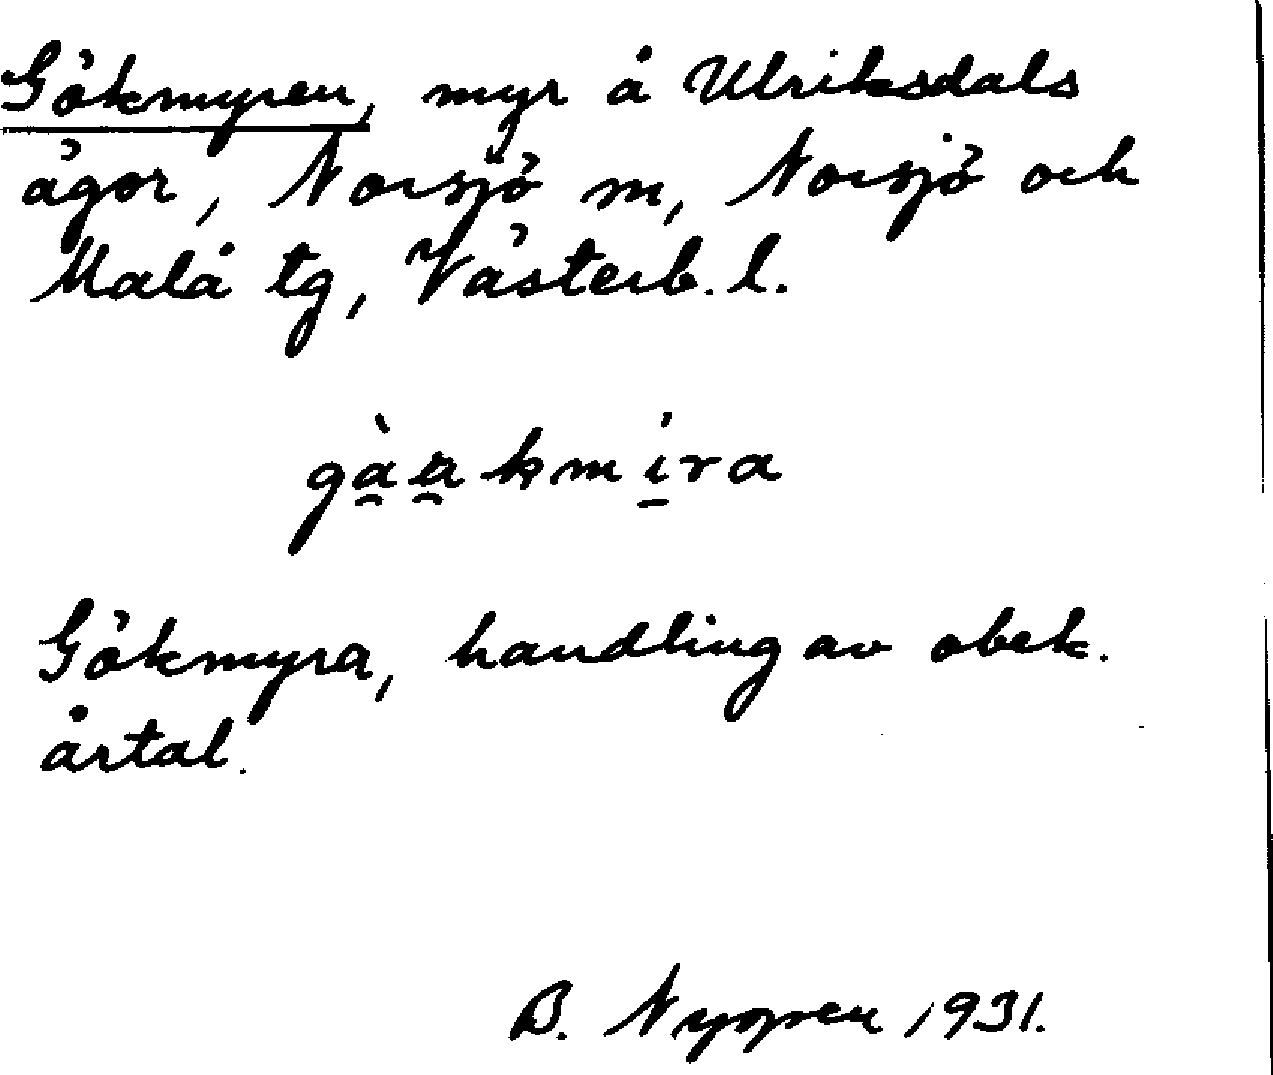 Gökmyren, myr å Ulriksdals
ägor, Norsjö sn, Norsjö och
Malå tg, Västerb. l.
Gökmyra, handling av obek.
årtal.
B. Nygren 1931.